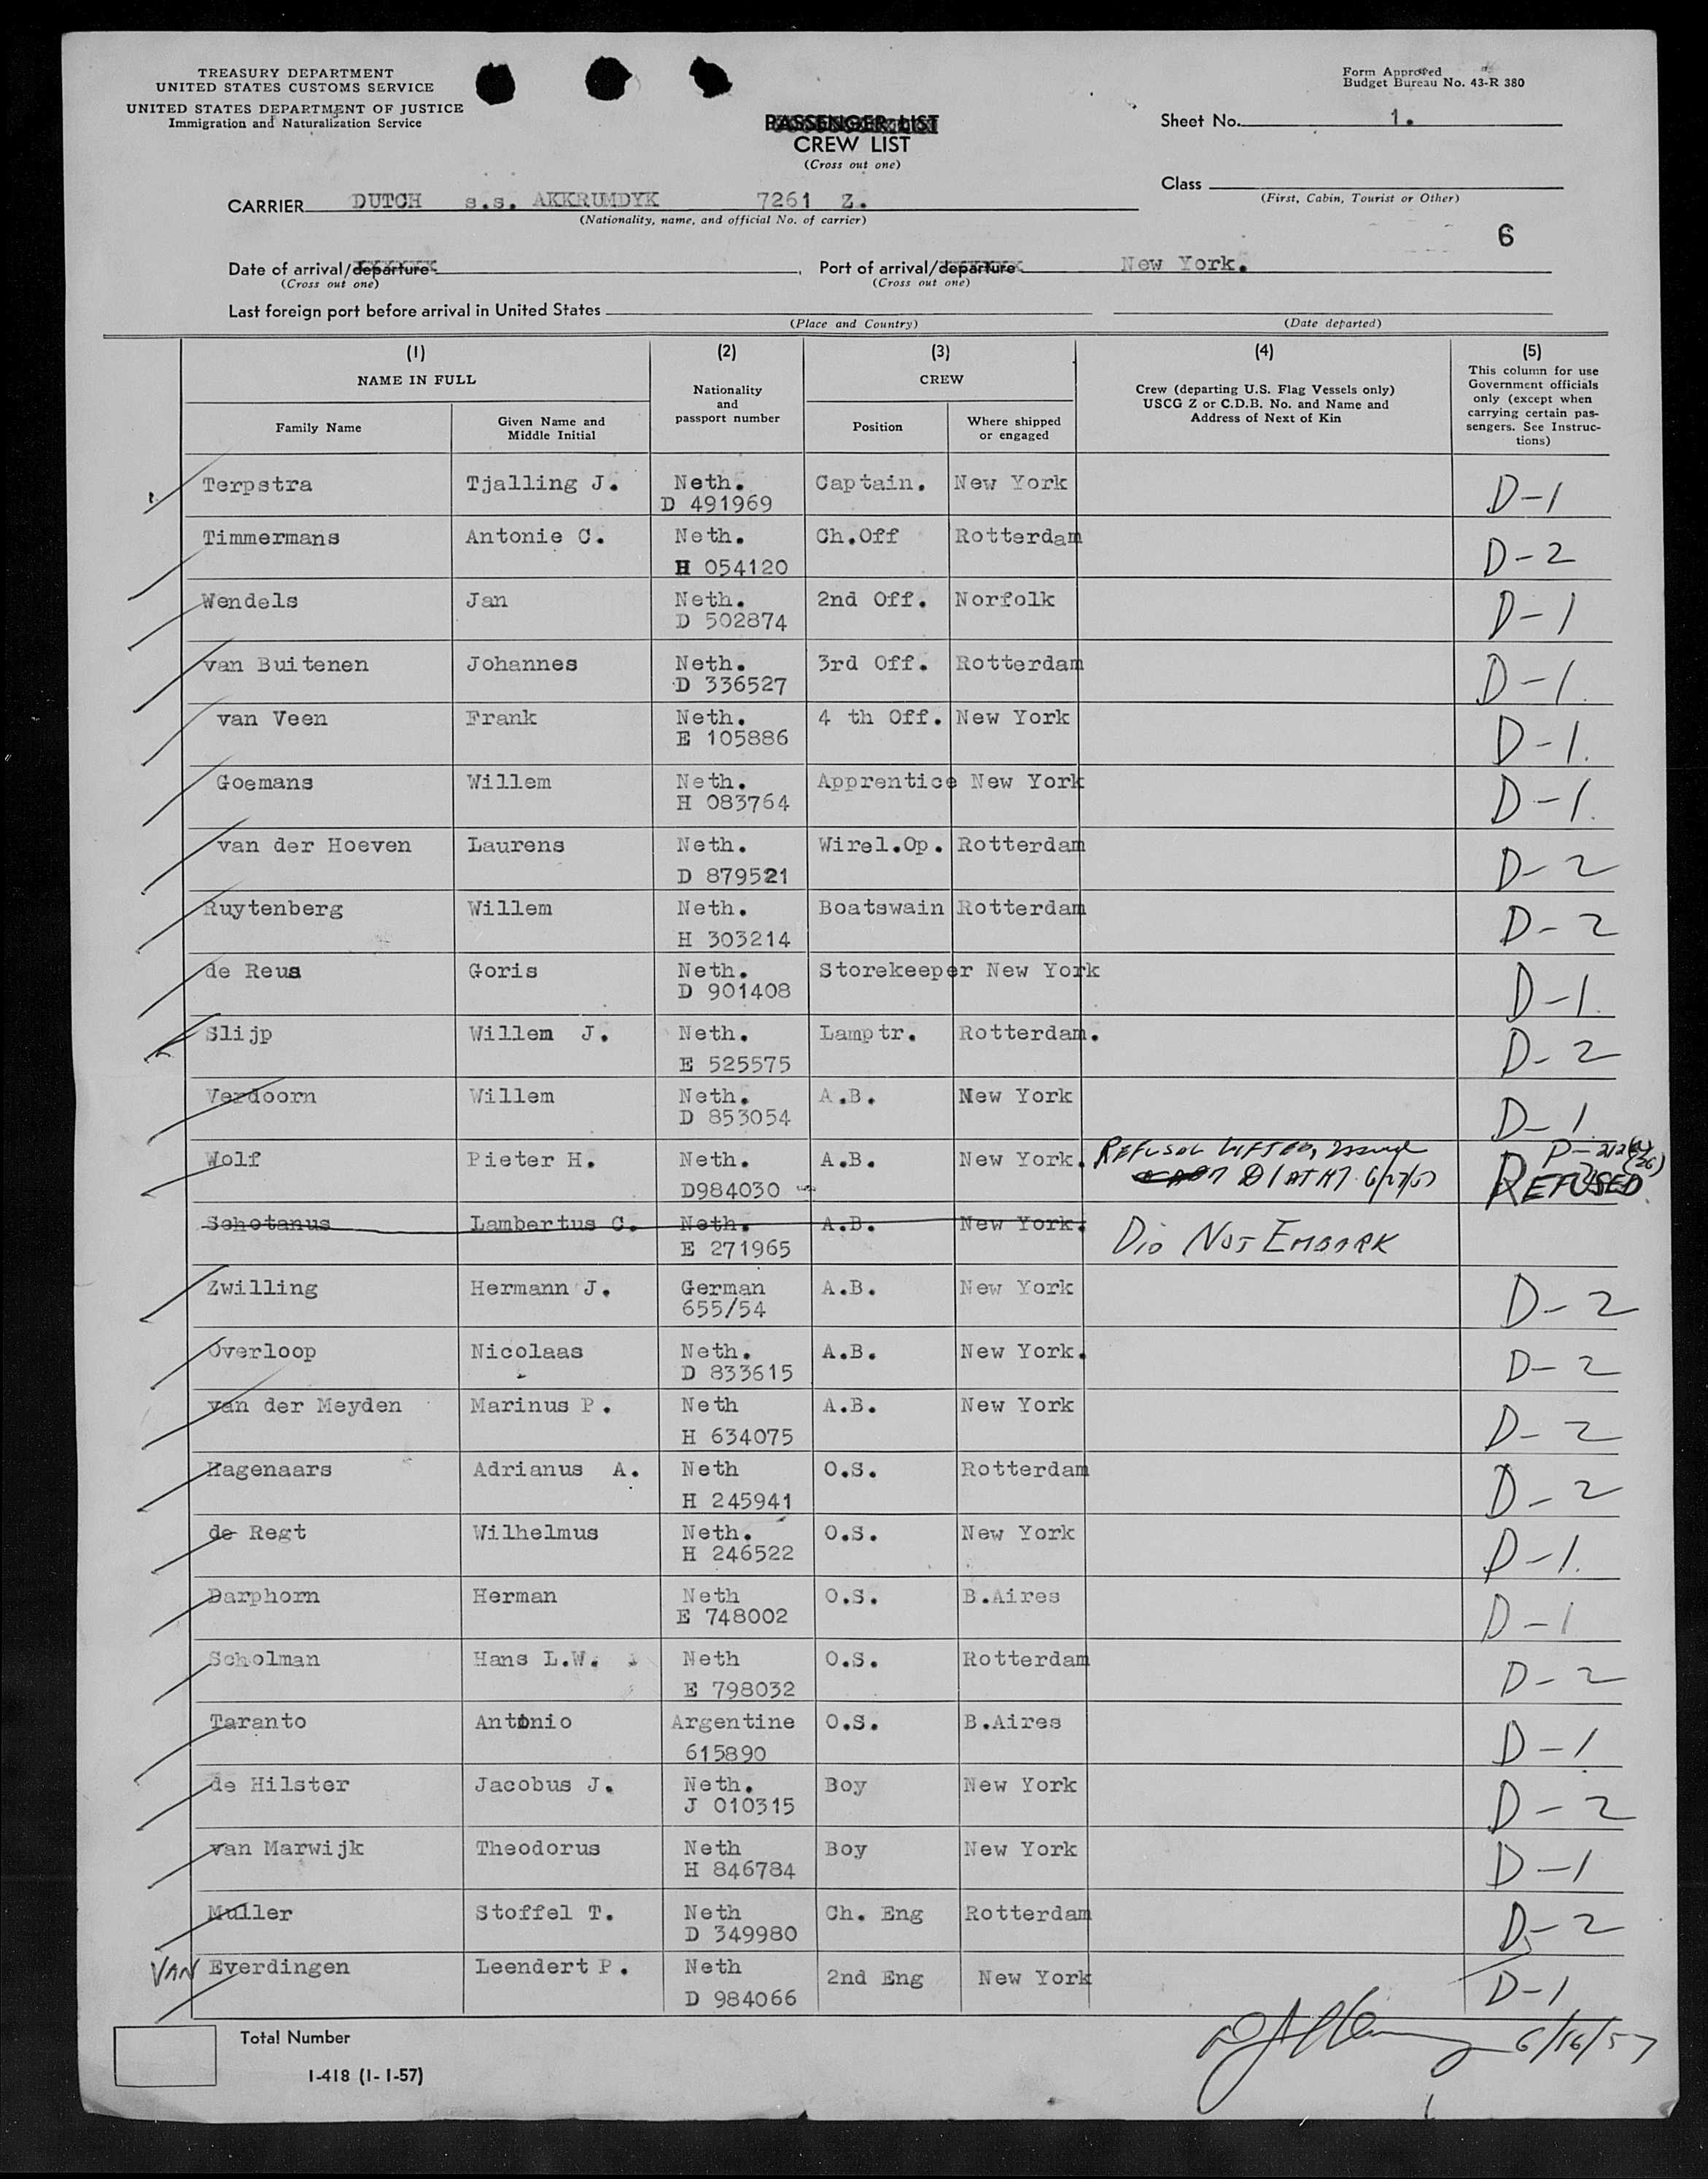 TREASURY DEPARTMENT
UNITED STATES CUSTOMS SERVICE
UNITED STATES DEPARTMENT OF JUSTICE
Immigration and Naturalization Service
Form Approved
Budget Bureau No. 43-R 380
PASSENGER LIST
CREW LIST
(Cross out one)
Sheet No. 1.
Class
(First, Cabin, Tourist or Other)
CARRIER DUTCH s.s. AKKRUMDYK 7261 Z.
(Nationality, name, and official No. of carrier)
6
Date of arrival/departure
(Cross out one)
Port of arrival/departure New York.
(Cross out one)
Last foreign port before arrival in United States
(Place and Country)
(Date departed)
(1) (2) (3) (4) (5)
NAME IN FULL
Family Name
Given Name and Middle Initial
Nationality and passport number
CREW
Position
Where shipped or engaged
Crew (departing U.S. Flag Vessels only)
USCG Z or C.D.B. No. and Name and
Address of Next of Kin
This column for use
Government officials
only (except when
carrying certain pas-
sengers. See Instruc-
tions)
Terpstra Tjalling J. Neth. Captain. New York D-1
D 491969
Timmermans Antonie C. Neth. Ch.Off Rotterdam D-2
H 054120
Wendels Jan Neth. 2nd Off. Norfolk D-1
D 502874
van Buitenen Johannes Neth. 3rd Off. Rotterdam D-1.
D 336527
van Veen Frank Neth. 4 th Off. New York D-1.
E 105886
Goemans Willem Neth. Apprentice New York D-1.
H 083764
van der Hoeven Laurens Neth. Wirel.Op. Rotterdam D-2
D 879521
Ruytenberg Willem Neth. Boatswain Rotterdam D-2
H 303214
de Reus Goris Neth. Storekeeper New York D-1.
D 901408
Slijp Willem J. Neth. Lamptr. Rotterdam. D-2
E 525575
Verdoorn Willem Neth. A.B. New York D-1
D 853054
Wolf Pieter H. Neth. A.B. New York. REFUSAL LIFTED, issued
D984030 D1 AT
REFUSED
Schotanus Lambertus C. Neth. A.B. New York. DID NOT EMBARK
E 271965
Zwilling Hermann J. German A.B. New York D-2
655/54
Overloop Nicolaas Neth. A.B. New York. D-2
D 833615
van der Meyden Marinus P. Neth A.B. New York D-2
H 634075
Hagenaars Adrianus A. Neth O.S. Rotterdam D-2
H 245941
de Regt Wilhelmus Neth. O.S. New York D-1.
H 246522
Darphorn Herman Neth O.S. B.Aires D-1
E 748002
Scholman Hans L.W. Neth O.S. Rotterdam D-2
E 798032
Taranto Antonio Argentine O.S. B.Aires D-1
615890
de Hilster Jacobus J. Neth. Boy New York D-2
J 010315
van Marwijk Theodorus Neth Boy New York D-1
H 846784
Muller Stoffel T. Neth Ch. Eng Rotterdam D-2
D 349980
VAN Everdingen Leendert P. Neth 2nd Eng New York D-1
D 984066
6/16/57
Total Number
I-418 (1-1-57)